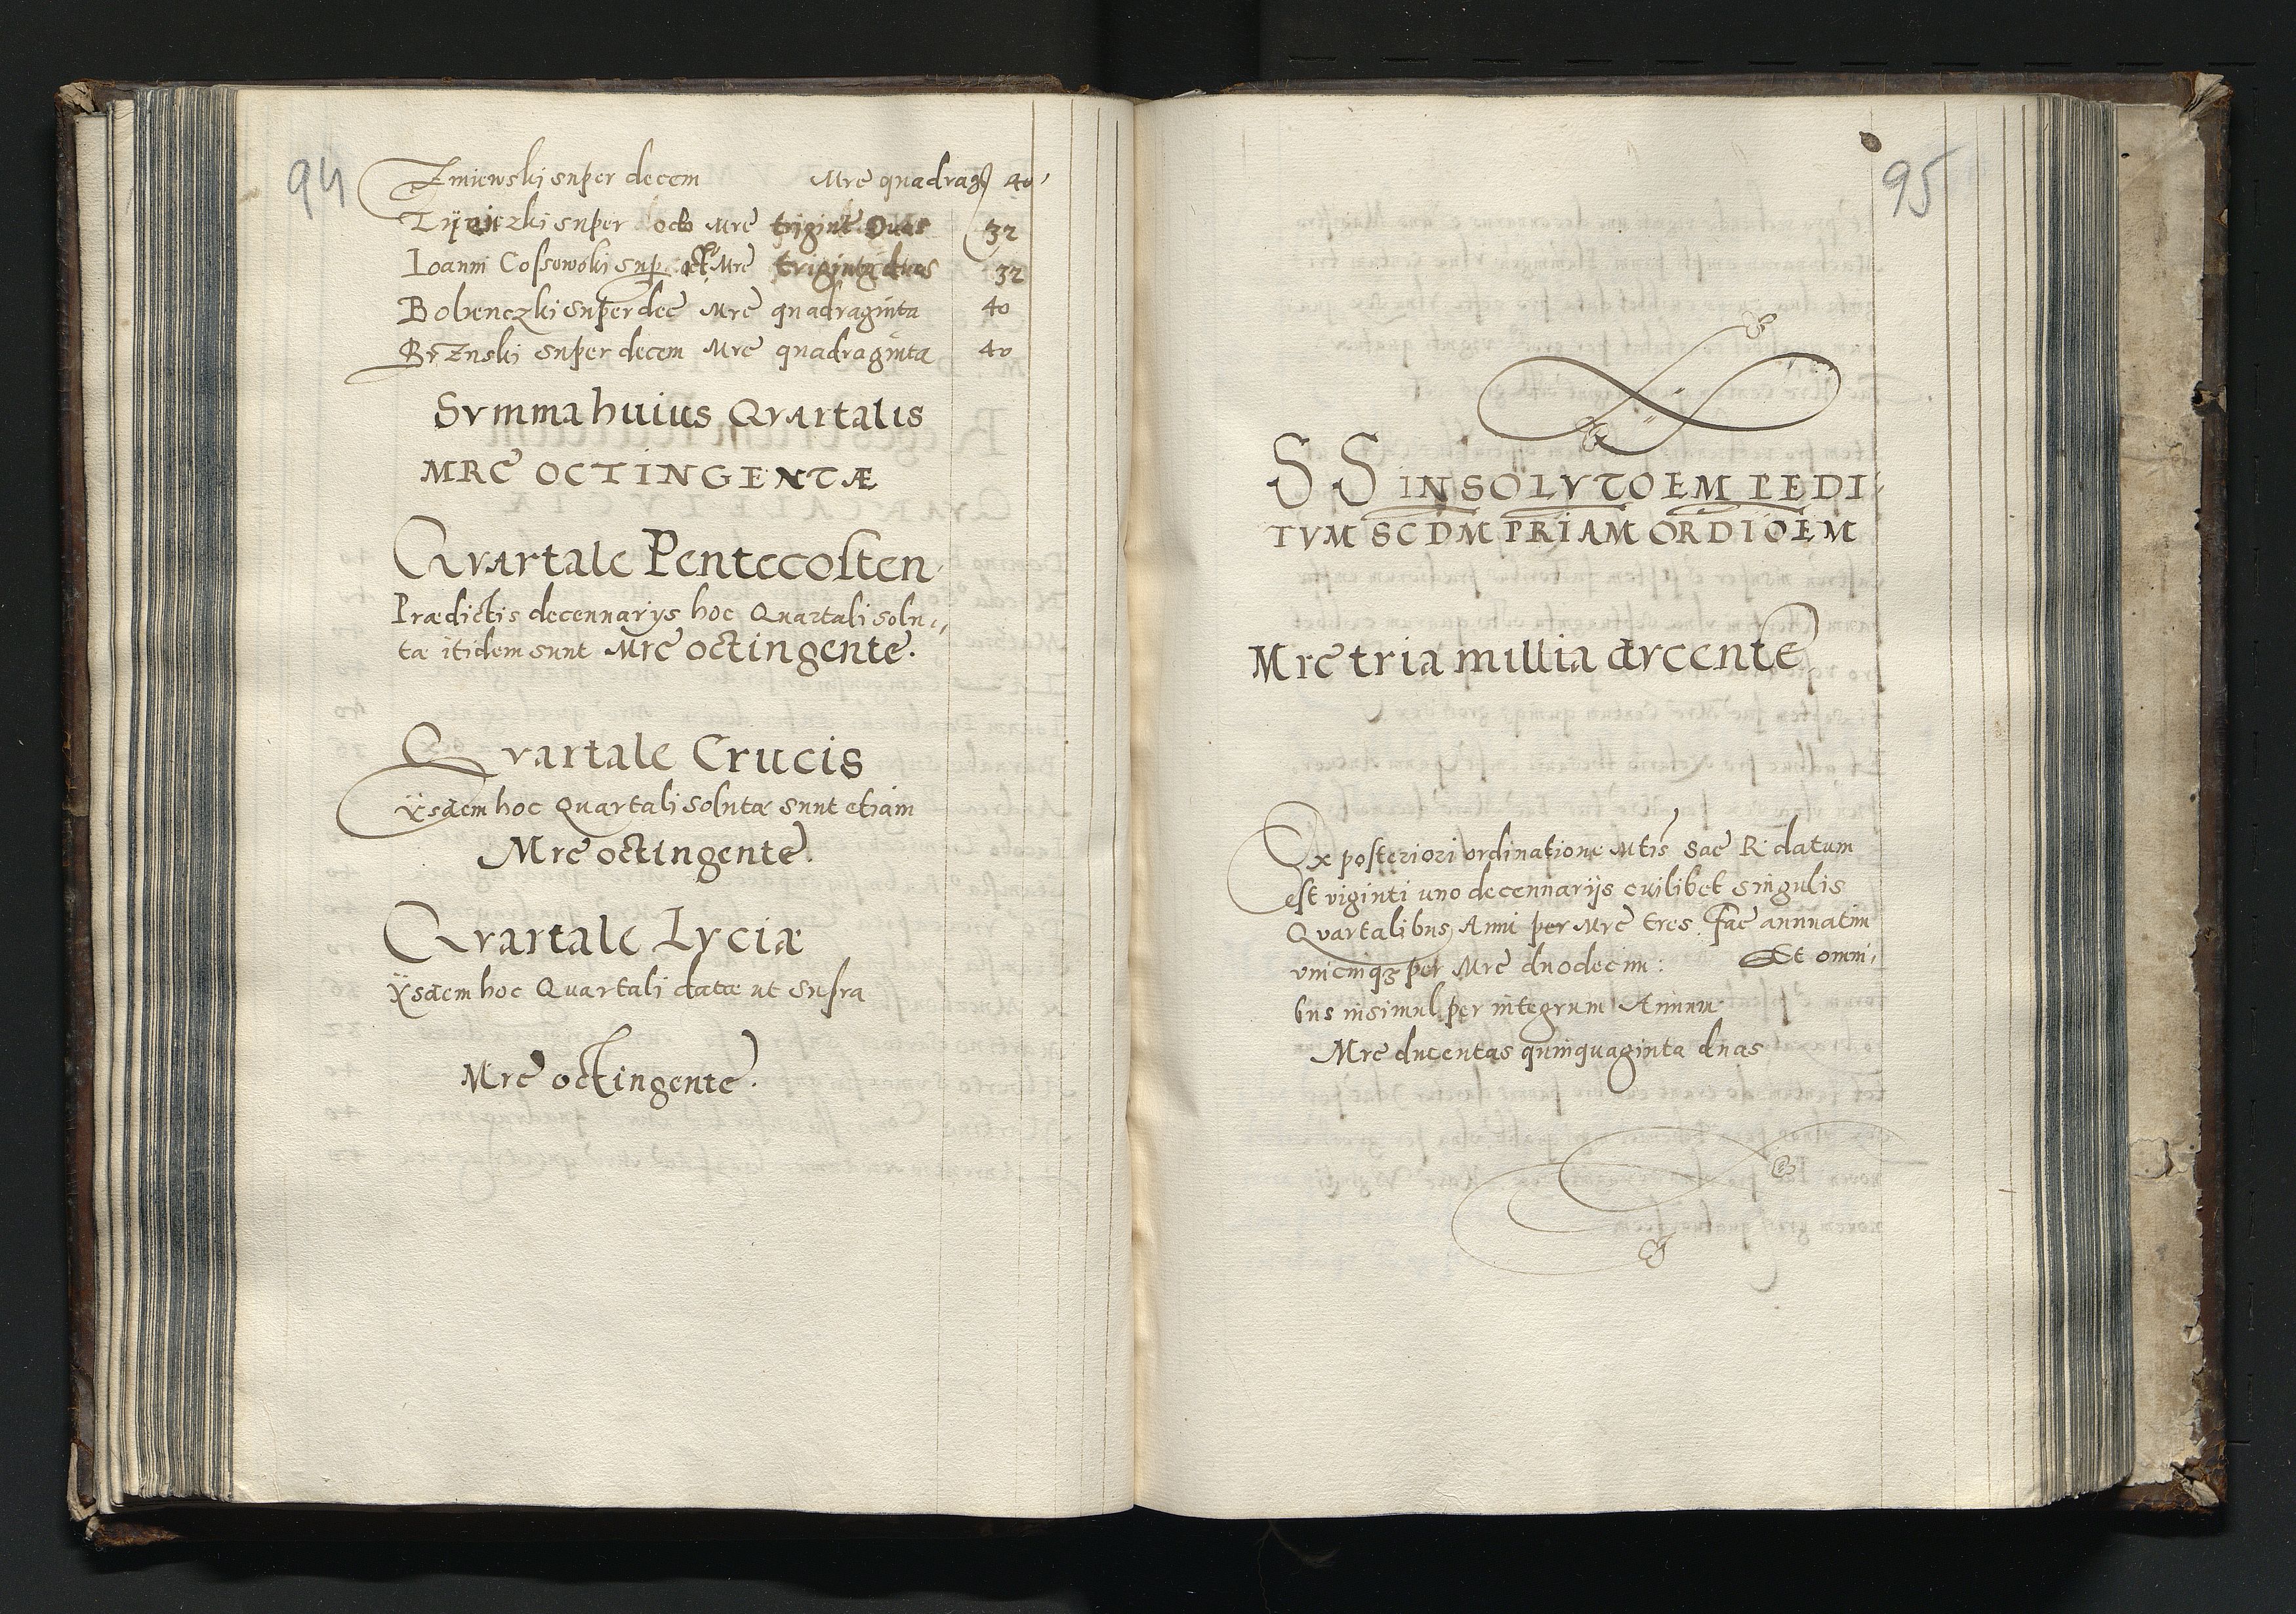 94
Zmiewski super decem Mrē quadrag 40
Tÿniczki super octo Mrē trigintē Duas 32
Ioanni Cossowski sup octo Mrē triginta duas 32
Bobenczki super dec̄ Mrē quadraginta 40
super decem Mrē quadraginta 40
Svmma huius Qvartalis
MRE OCTINGENTÆ
Qvartale Pentecosten
Prædictis decennarijs hoc Quartali solu
tæ itidem sunt Mrē octingentē.
Qvartale Crucis
Ÿsdem hoc Quartali solutæ sunt etiam
Mrē octingentē.
Qvartale Lvciæ
Ÿsdem hoc Quartali datæ ut supra
Mrē octingentē.
95
SS IN SOLVTOEM PEDI
TVM SCDM PRIAM ORDIOEM
Mrē tria millia dvcentē
Ex posteriori ordinatione Mtis Sac̄ R datum
est viginti uno decennarijs cuilibet singulis
Quartalibus Anni per Mrē tres. Fac̄ annuatim
vnicuiqʒ per Mrē duodecim: Et omni,
bus insimul per integrum Annum
Mrē ducentas quinquaginta duas